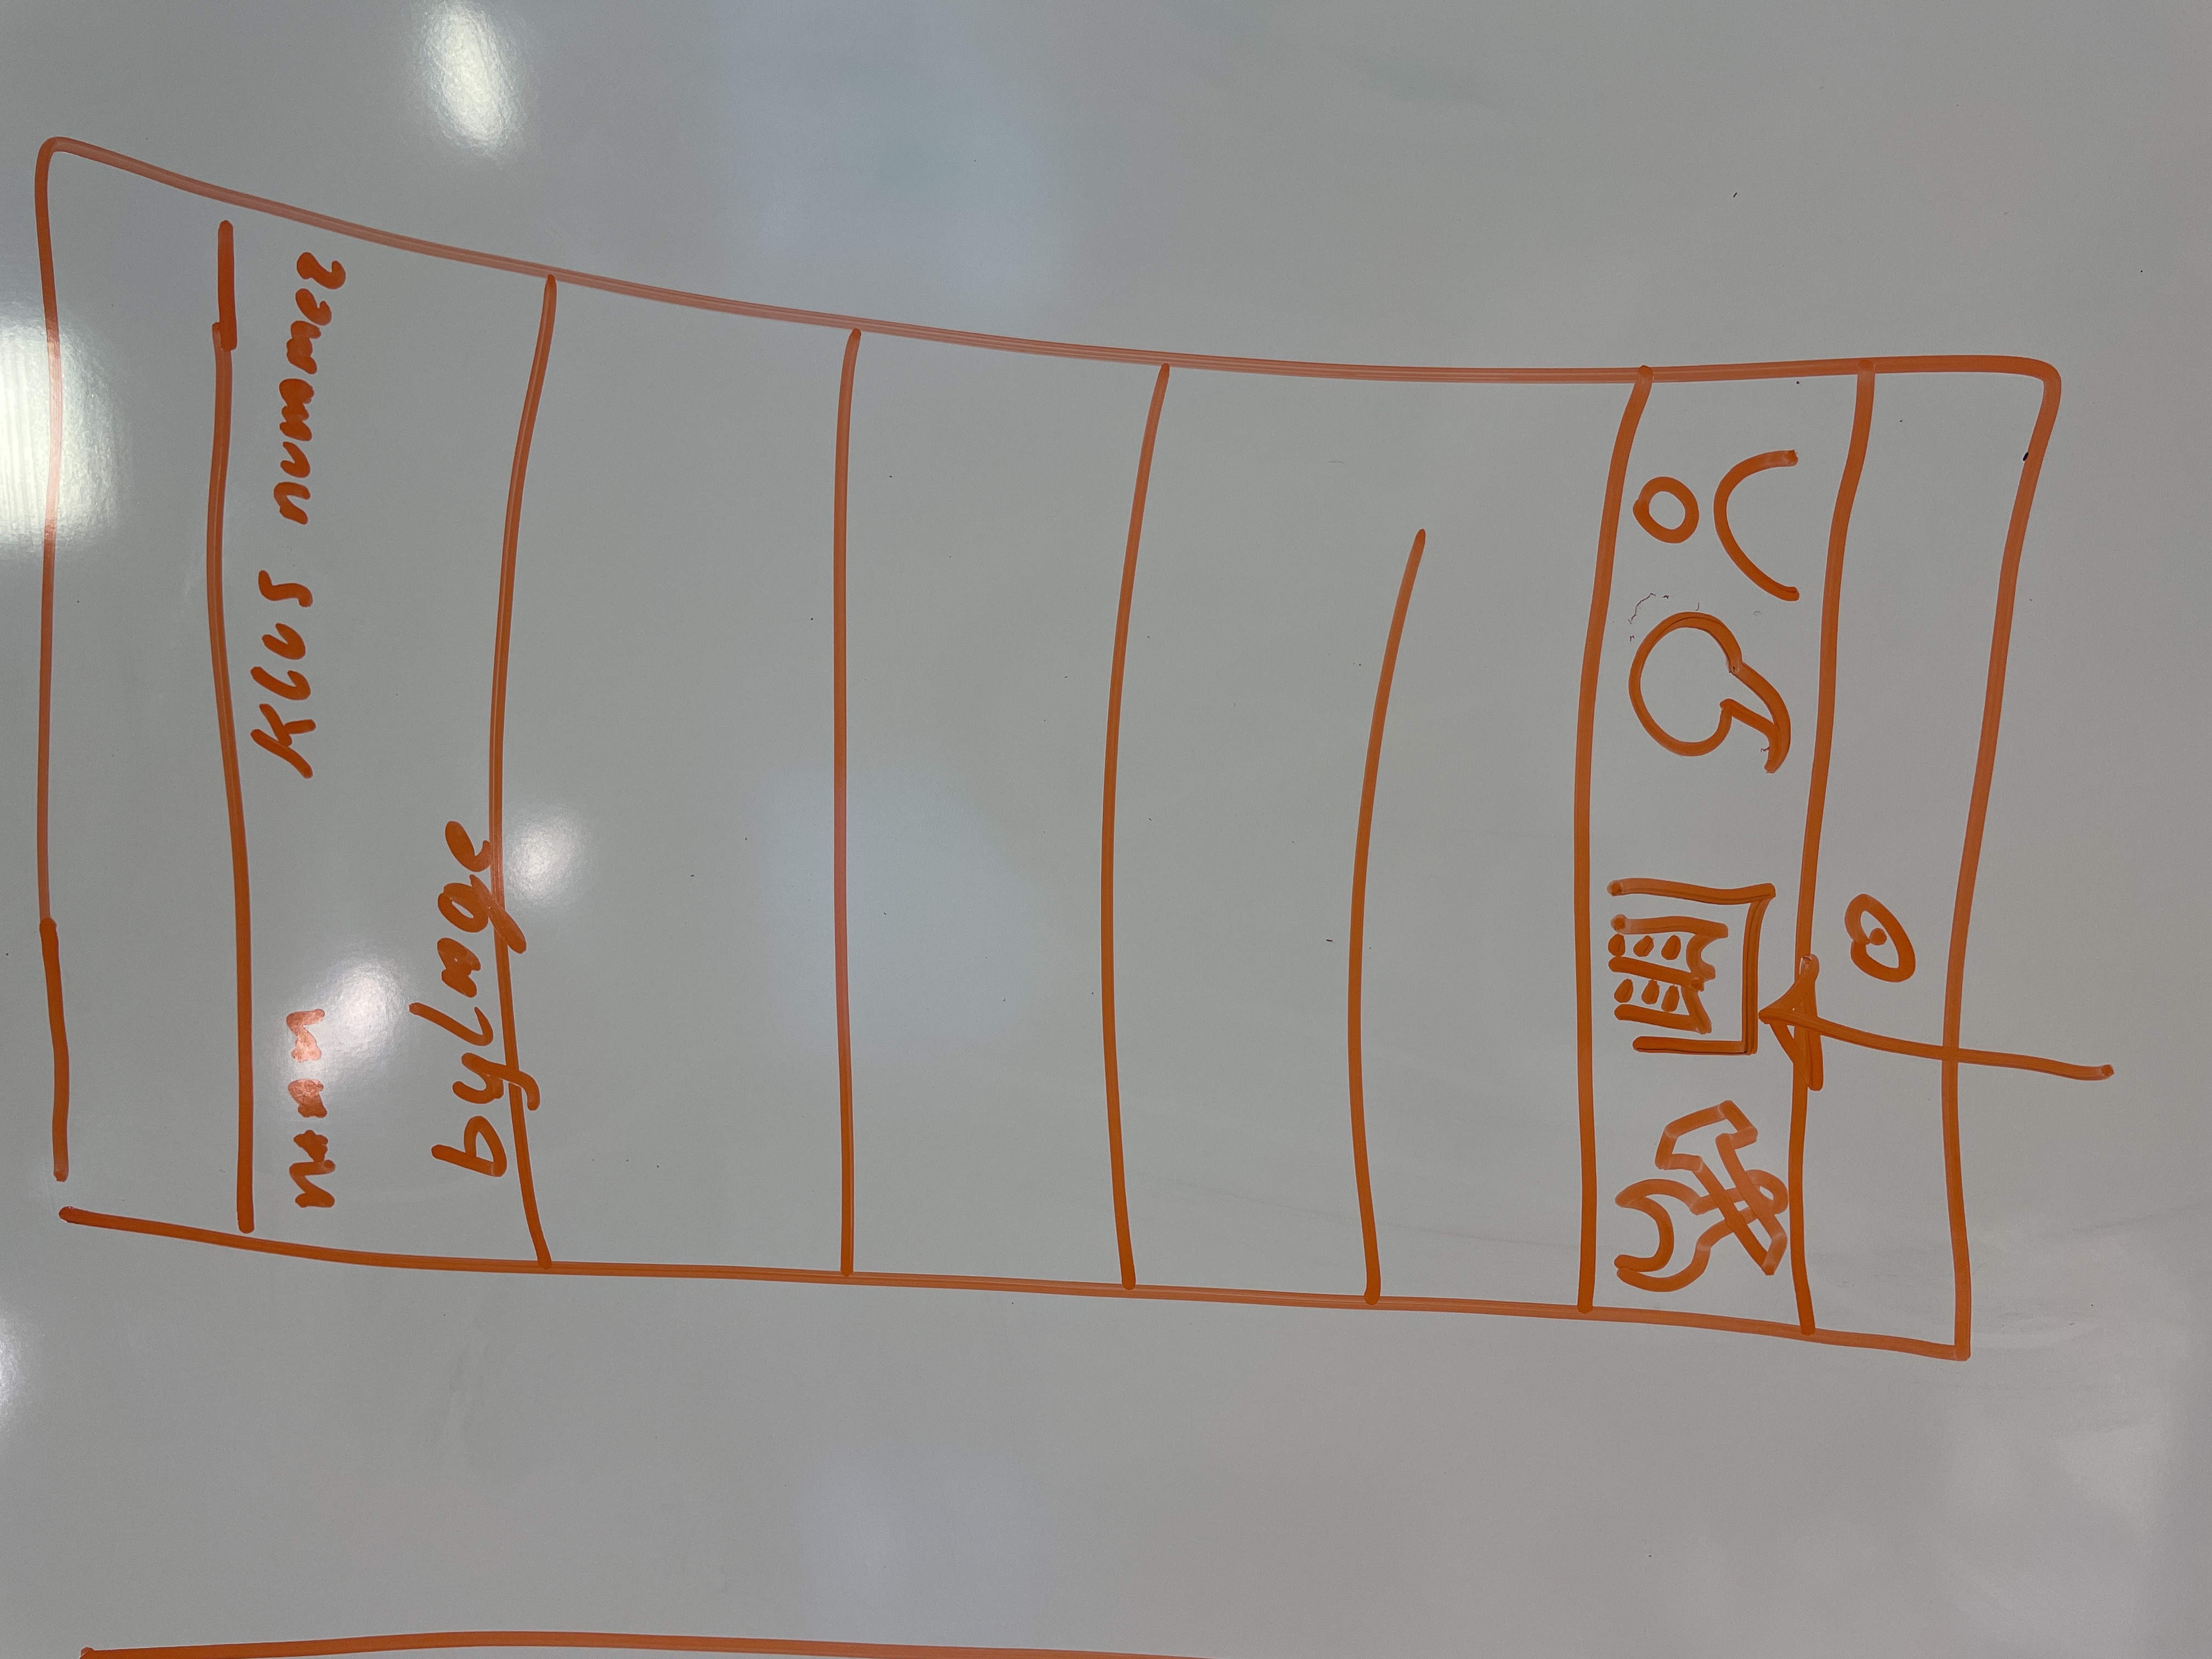 naam
Klus nummer
bylage